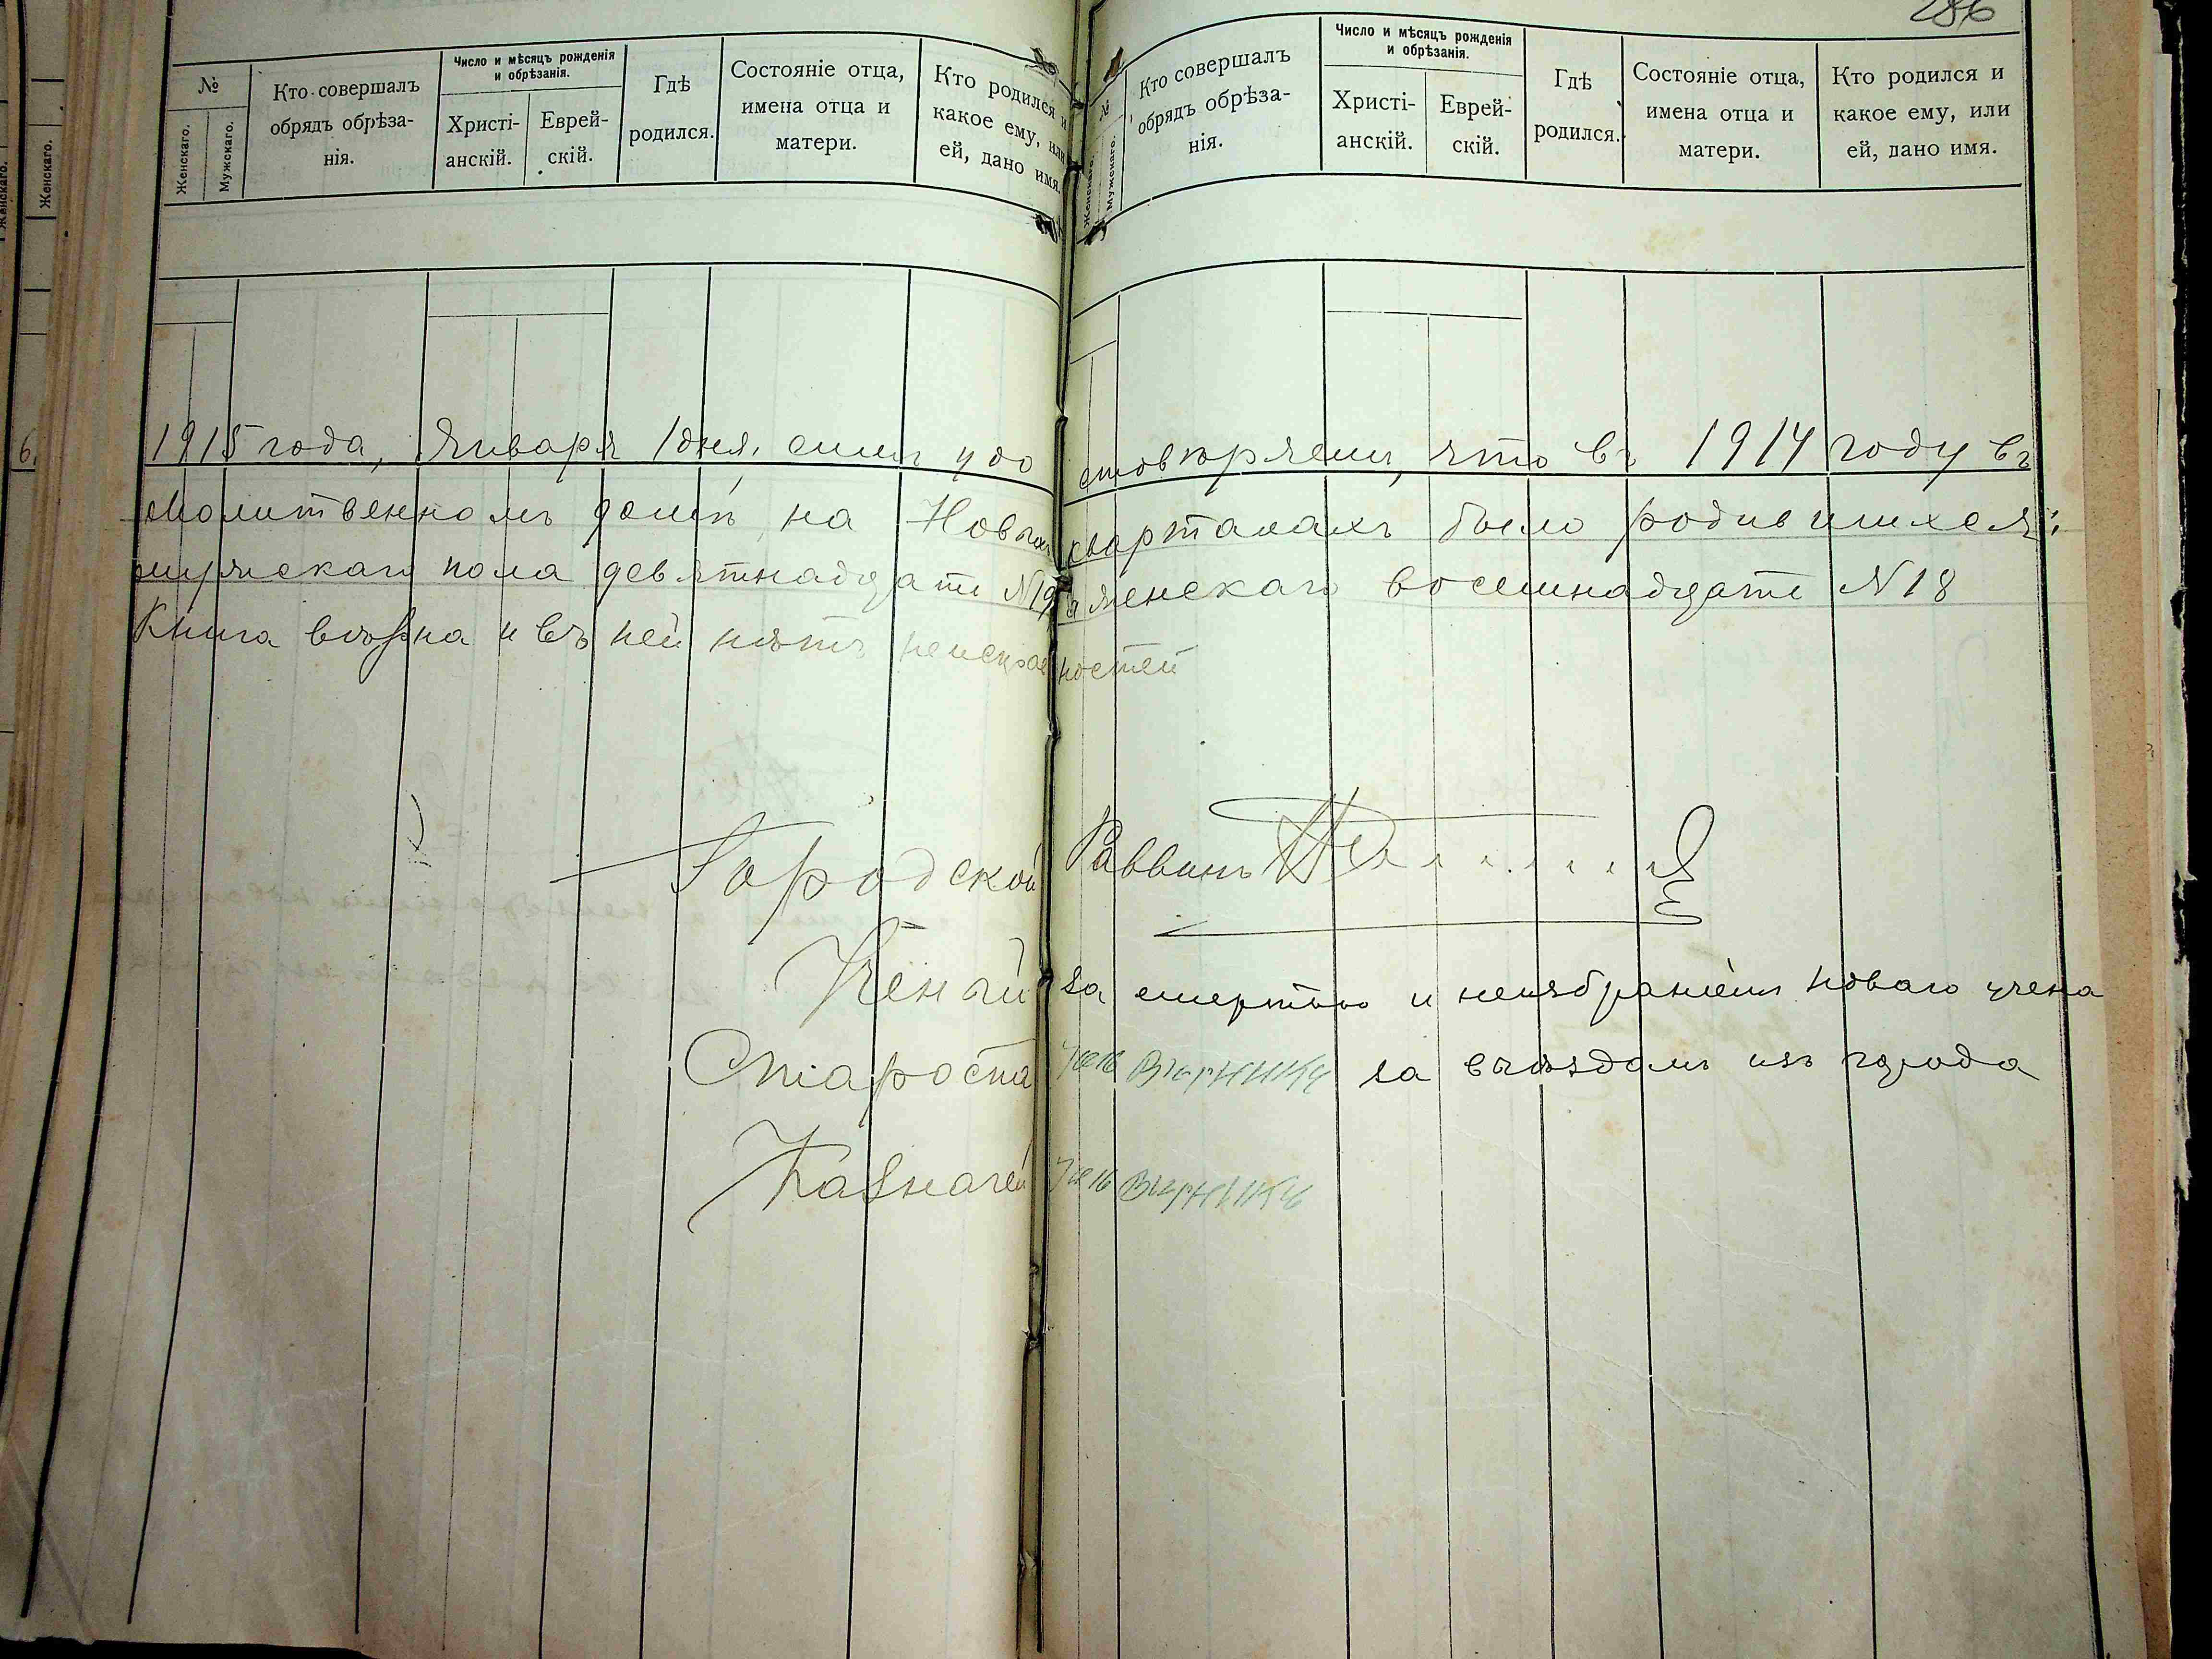 286
№
Женскаго.
Мужскаго.
Кто совершалъ
обрядъ обрѣза-
нія.
Число и мѣсяцъ рожденія
и обрѣзанія.
Христі-
анскій.
Еврей-
скій.
Гдѣ
родился.
Состояніе отца,
имена отца и
матери.
Кто родился и
какое ему, или
ей, дано имя.
№
Женскаго.
Мужскаго.
Кто совершалъ
обрядъ обрѣза-
нія.
Число и мѣсяцъ рожденія
и обрѣзанія.
Христі-
анскій.
Еврей-
скій.
Гдѣ
родился.
Состояніе отца,
имена отца и
матери.
Кто родился и
какое ему, или
ей, дано имя.
Женскаго.
1915 года, Января 1 дня, симъ удостовѣряемъ, что въ 1914 году въ
молитвенномъ домѣ на Новыхъ кварталахъ было родившихся:
мужскаго пола девятнадцать N19 и женскаго восемнадцать N18
Книга вѣрна и въ ней нѣтъ неисправностей
Городской Раввинъ
Ученый за смертью и неизбраніемъ новаго учена
Староста за выѣздомъ изъ города
Казначей